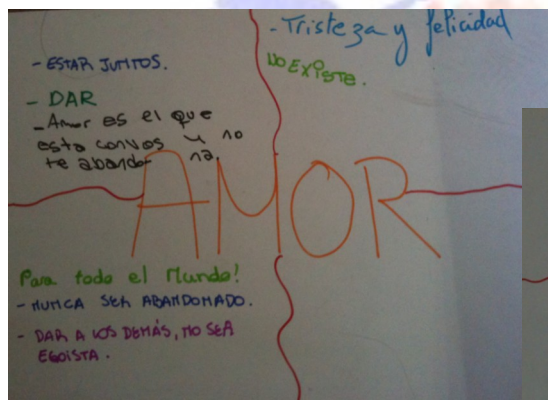 - ESTAR JUNTOS.
- DAR
- Amor es el que
esta convos y no
te abando-
na.
- Tristeza y felicidad
NO EXISTE.
AMOR
Para todo el Mundo!
- NUNCA SER ABANDONADO.
- DAR A LOS DEMÁS, NO SER
EGOISTA.